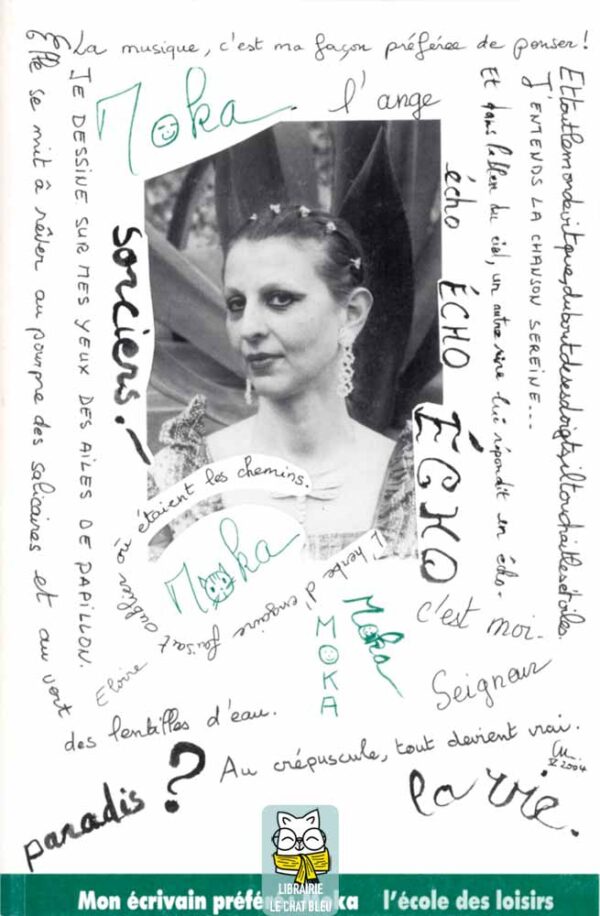 La musique, c'est ma façon préférée de penser!
Elle se mit à rêver au pourpre des salicaires et au vert
des lentilles d'eau.
JE DESSINE SUR MES YEUX DES AILES DE PAPILLON.
Moka.
l'ange
sorciers.
écho ÉCHO ÉCHO
Et dans le bleu du ciel, un autre rire lui répondit en écho.
J'ENTENDS LA CHANSON SEREINE...
Ettoutlemondevitque,duboutdesesdoigts,iltouchaitlesétoiles.
L'herbe d'engaire faisait oublier où étaient les chemins.
Moka
Moka
MOKA
Eloïse
c'est moi.
Seigneur
Au crépuscule, tout devient vrai.
2004
paradis?
la vie.
LIBRAIRIE
LE CHAT BLEU
Mon écrivain préféré ka l'école des loisirs